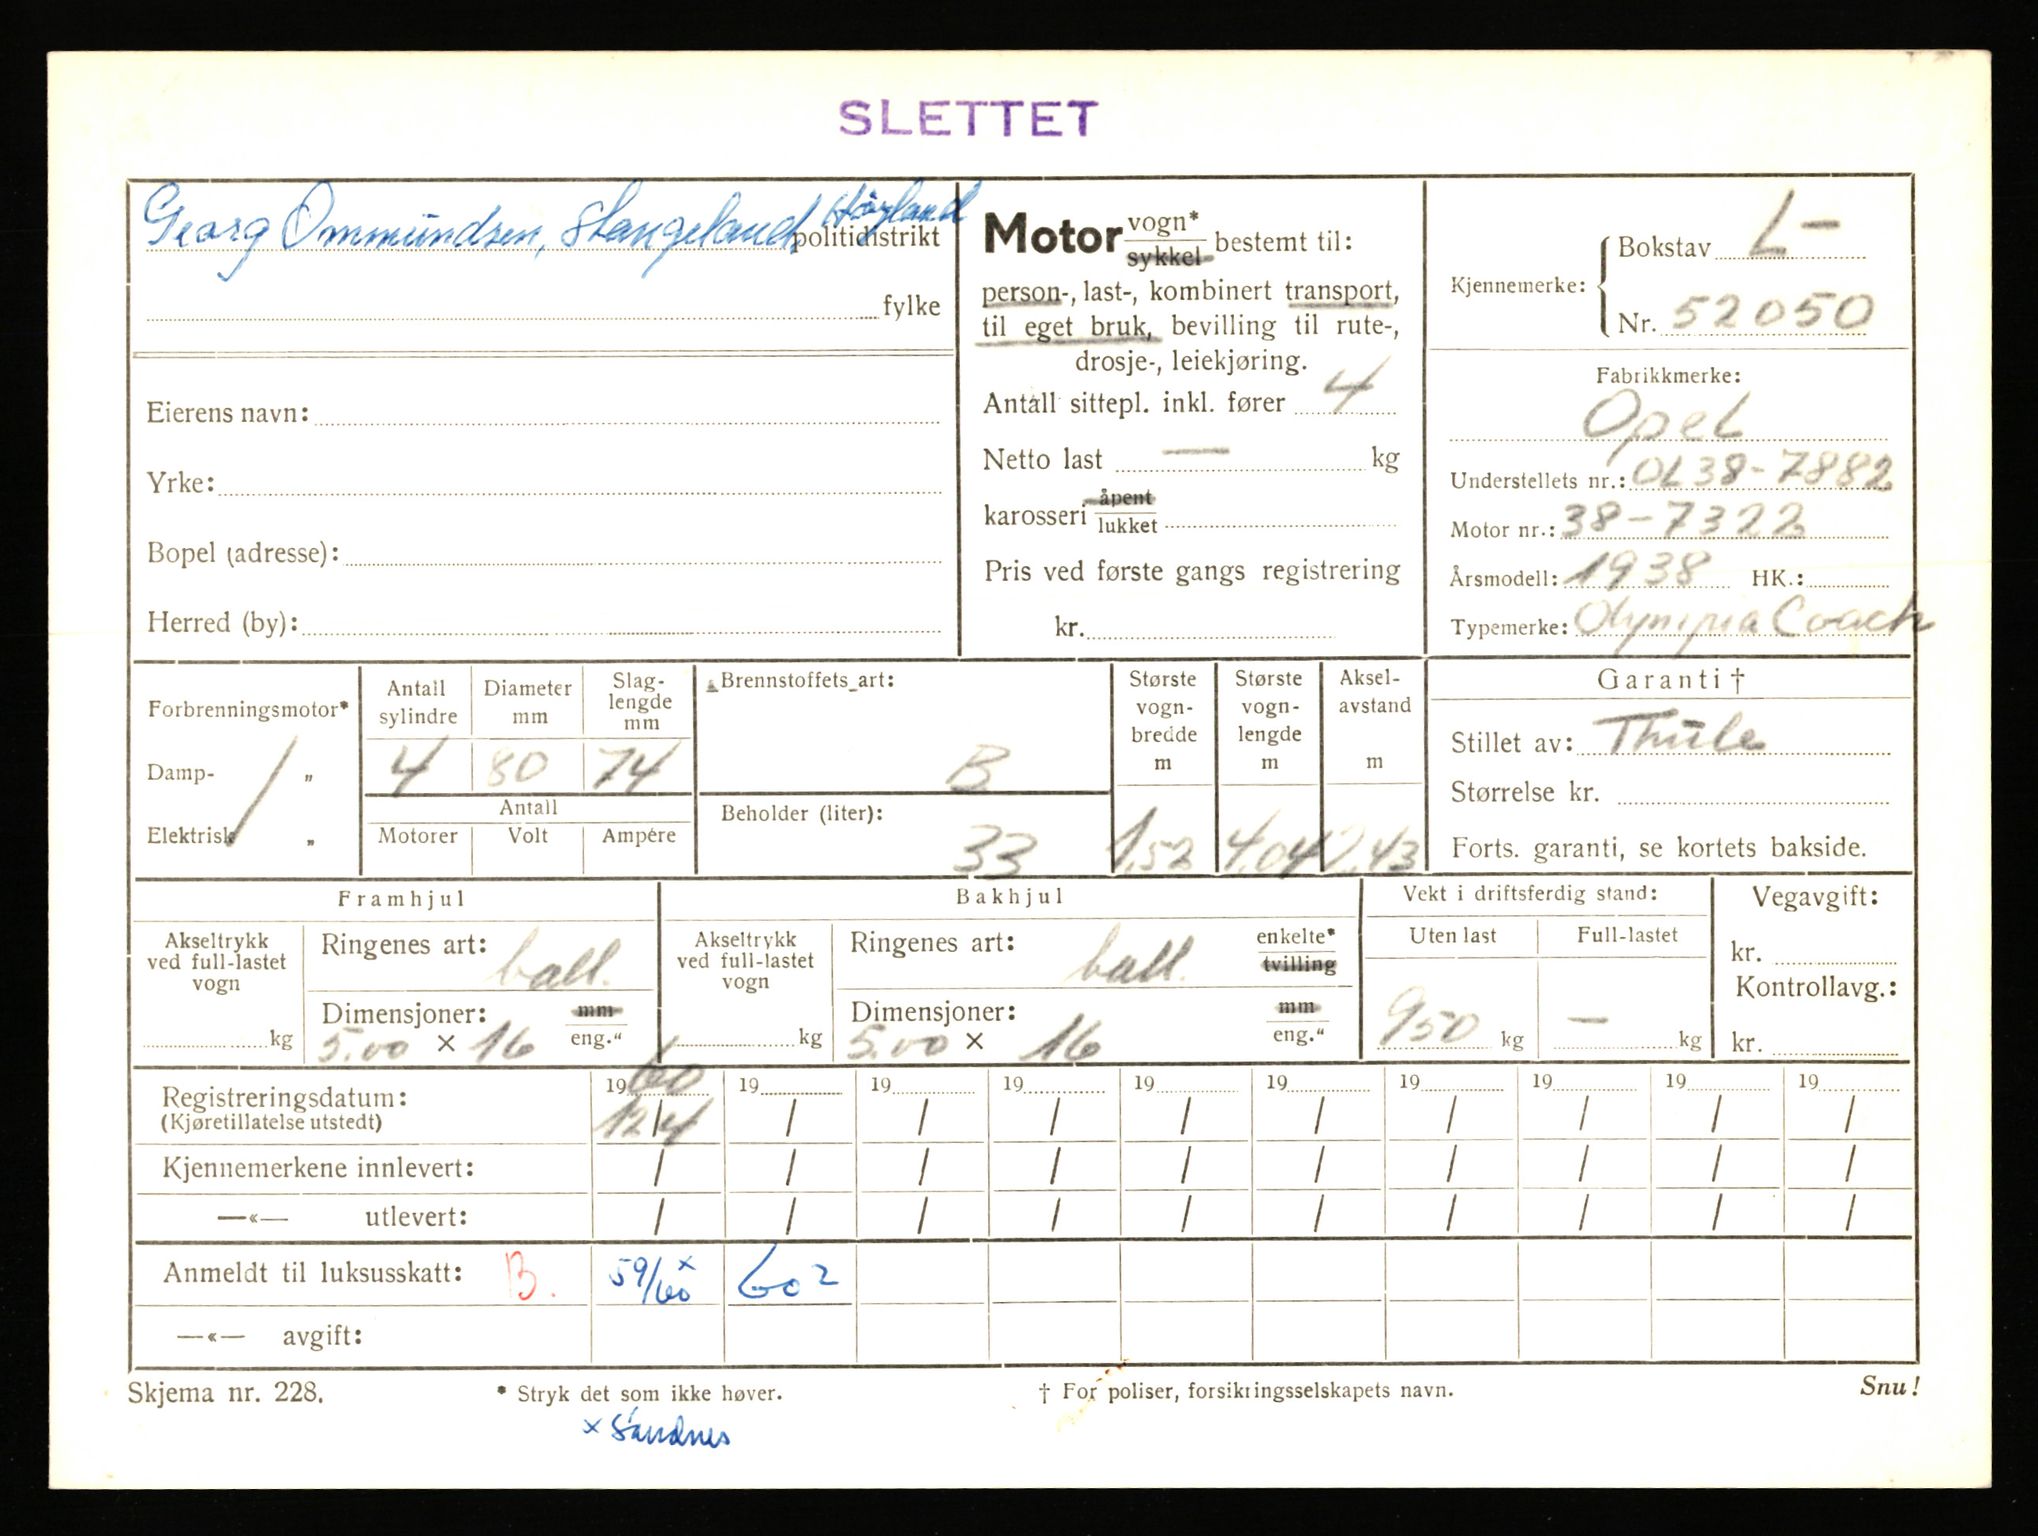 SLETTET
Georg Ommundsen, Stangeland, Høyland
politidistrikt
fylke
Eierens navn:
Yrke:
Bopel (adresse):
Herred (by):
Motor vogn* sykkel bestemt til:
person-, last-, kombinert transport,
til eget bruk, bevilling til rute-,
drosje-, leiekjøring.
Antall sittepl. inkl. fører 4
Netto last — kg
karosseri åpent lukket
Pris ved første gangs registrering
kr.
Kjennemerke:
Bokstav L-
Nr. 52050
Fabrikkmerke:
Opel
Understellets nr.: OL38-7882
Motor nr.: 38-7322
Årsmodell: 1938 HK.:
Typemerke: Olympia Coach
Forbrenningsmotor*
Damp- „
Elektrisk „
Antall sylindre
Diameter mm
Slag-lengde mm
4 80 74
Antall
Motorer Volt Ampére
Brennstoffets art:
B
Beholder (liter):
33
Største vogn-bredde m
1,52
Største vogn-lengde m
4,04
Aksel-avstand m
2,43
Garanti †
Stillet av: Thule
Størrelse kr.
Forts. garanti, se kortets bakside.
Framhjul
Akseltrykk ved full-lastet vogn
kg
Ringenes art: ball.
Dimensjoner: mm
5.00 × 16 eng.“
Bakhjul
Akseltrykk ved full-lastet vogn
kg
Ringenes art: ball. enkelte* tvilling
Dimensjoner: mm
5.00 × 16 eng.“
Vekt i driftsferdig stand:
Uten last Full-lastet
950 kg — kg
Vegavgift:
kr.
Kontrollavg.:
kr.
Registreringsdatum: 1960 19 19 19 19 19 19 19 19 19
(Kjøretillatelse utstedt) 12/4 / / / / / / / / /
Kjennemerkene innlevert: / / / / / / / / / /
—«— utlevert: / / / / / / / / / /
Anmeldt til luksusskatt: B. 59/60 x 60 2
—«— avgift:
Skjema nr. 228. * Stryk det som ikke høver. † For poliser, forsikringsselskapets navn. Snu!
x Sandnes